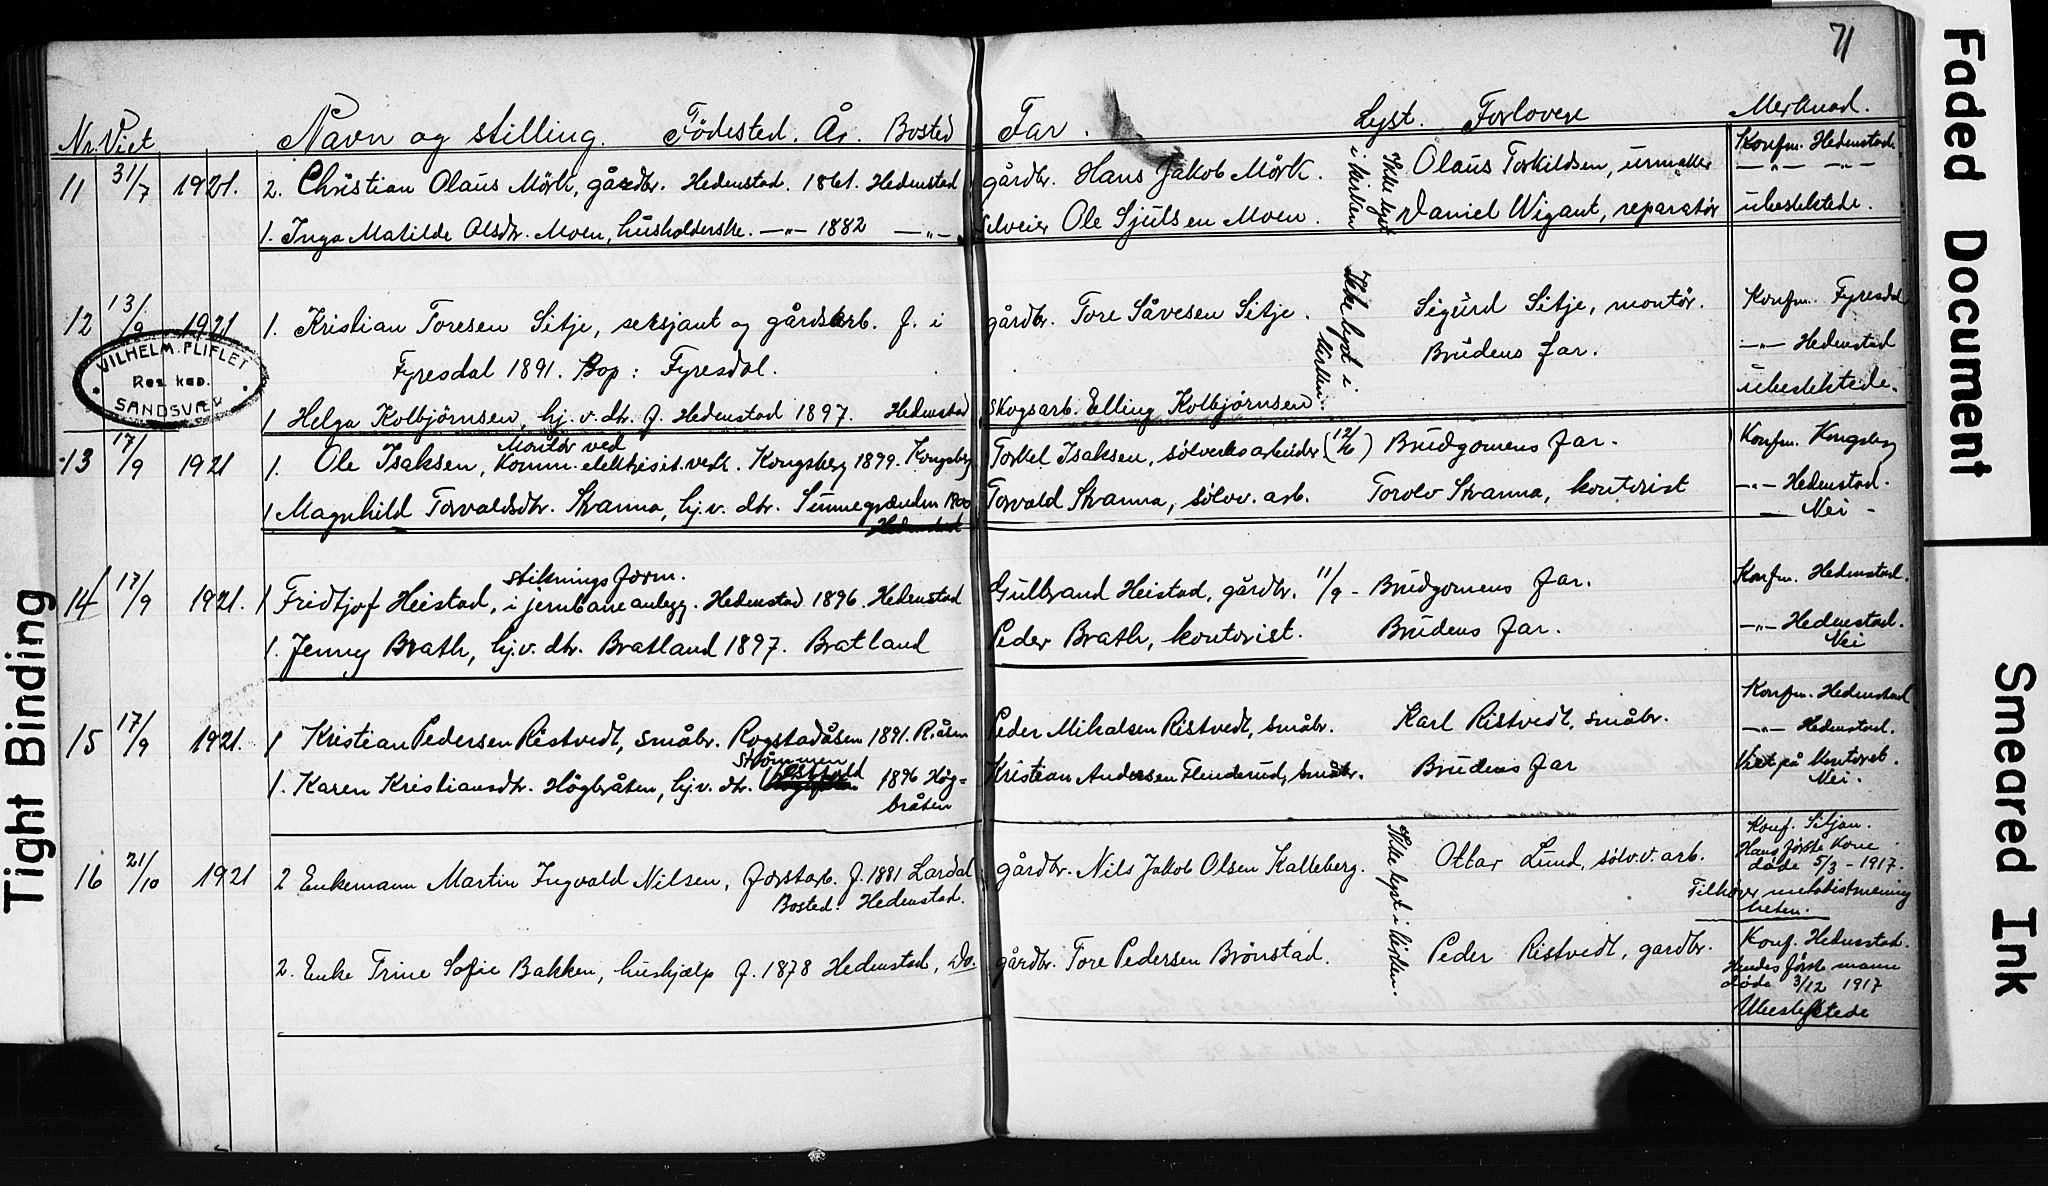 71
Nr. Viet Navn og stilling. Födested. År. Bosted Far. Lyst. Forlovere Merknad.
11 31/7 1921. 2. Christian Olaus Mörk, gårdbr. Hedenstad. 1861. Hedenstad gårdbr. Hans Jakob Mörk. Ikke lyst i kirken Olaus Torkildsen, urmaker Konfm. Hedenstad.
—"— —"—
1. Inga Matilde Olsdtr. Moen, husholderske. —"— 1882 —"— Selveier Ole Sjulsen Moen. Daniel Wigant, reparatör ubeslektede.
12 13/9 1921 1. Kristian Toresen Sitje, sersjant og gårdsarb. f. i gårdbr. Tore Såvesen Sitje. Ikke lyst i kirken. Sigurd Sitje, montör. Konfm. Fyresdal
Fyresdal 1891. Bop: Fyresdal. Brudens far. —"— Hedenstad
1 Helga Kolbjørnsen, hj. v. dtr. f. Hedenstad 1897. Hedenstad Skogsarb. Elling Kolbjørnsen. ubeslektede.
VILHELM FLIFLET
Res. kap.
SANDSVÆR
Montör ved
13 17/9 1921 1. Ole Isaksen, Komm. elektrisit.verk. Kongsberg 1899. Kongsberg Torkel Isaksen, sølverksarbeider (12/6) Brudgomens far. Konfm. Kongsberg
1 Magnhild Torvaldsdtr. Skranna, hj. v. dtr. Sunnegrænden 1900 Torvald Skranna, sølvv. arb. Torolv Skranna, kontorist —"— Hedenstad.
Hedenstad — Nei -
stiknings form.
14 17/9 1921. 1 Fridtjof Heistad, i jernbaneanlegg. Hedenstad 1896. Hedenstad Gulbrand Heistad, gårdbr. 11/9 - Brudgomens far. Konfm. Hedenstad.
1. Jenny Brath, hj. v. dtr. Bratland 1897. Bratland Peder Brath, kontorist. Brudens far. —"— Hedenstad.
Nei
Konfm. Hedenstad
15 17/9 1921. 1 Kristian Pedersen Ristvedt, småbr. Rogstadåsen 1891. R.åsen Peder Mikalsen Ristvedt, småbr. Karl Ristvedt, småbr. —"— Hedenstad.
Strömmen
1. Karen Kristiansdtr. Högbråten, hj. v. dtr. 1896 Hög- Kristian Andersen Flenderud, småbr. Brudens far Viet på kontoret.
bråten Nei.
16 21/10 1921 2 Enkemann Martin Ingvald Nilsen, forstarb. f. 1881 Lardal gårdbr. Nils Jakob Olsen Kalleberg. Ikke lyst i kirken. Ottar Lund, sølv.v. arb. Konf. Siljan.
Bosted. Hedenstad. Hans første kone
døde 5/3 - 1917.
Tilhører metodistmenig
heten.
2. Enke Trine Sofie Bakken, hushjælp f. 1878 Hedenstad, Do. gårdbr. Tore Pedersen Brönstad. Peder Ristvedt, gardbr. Konf. Hedenstad.
Hendes første mann
døde 3/12 1917
Ubeslektede
Faded Document
Smeared Ink
Tight Binding